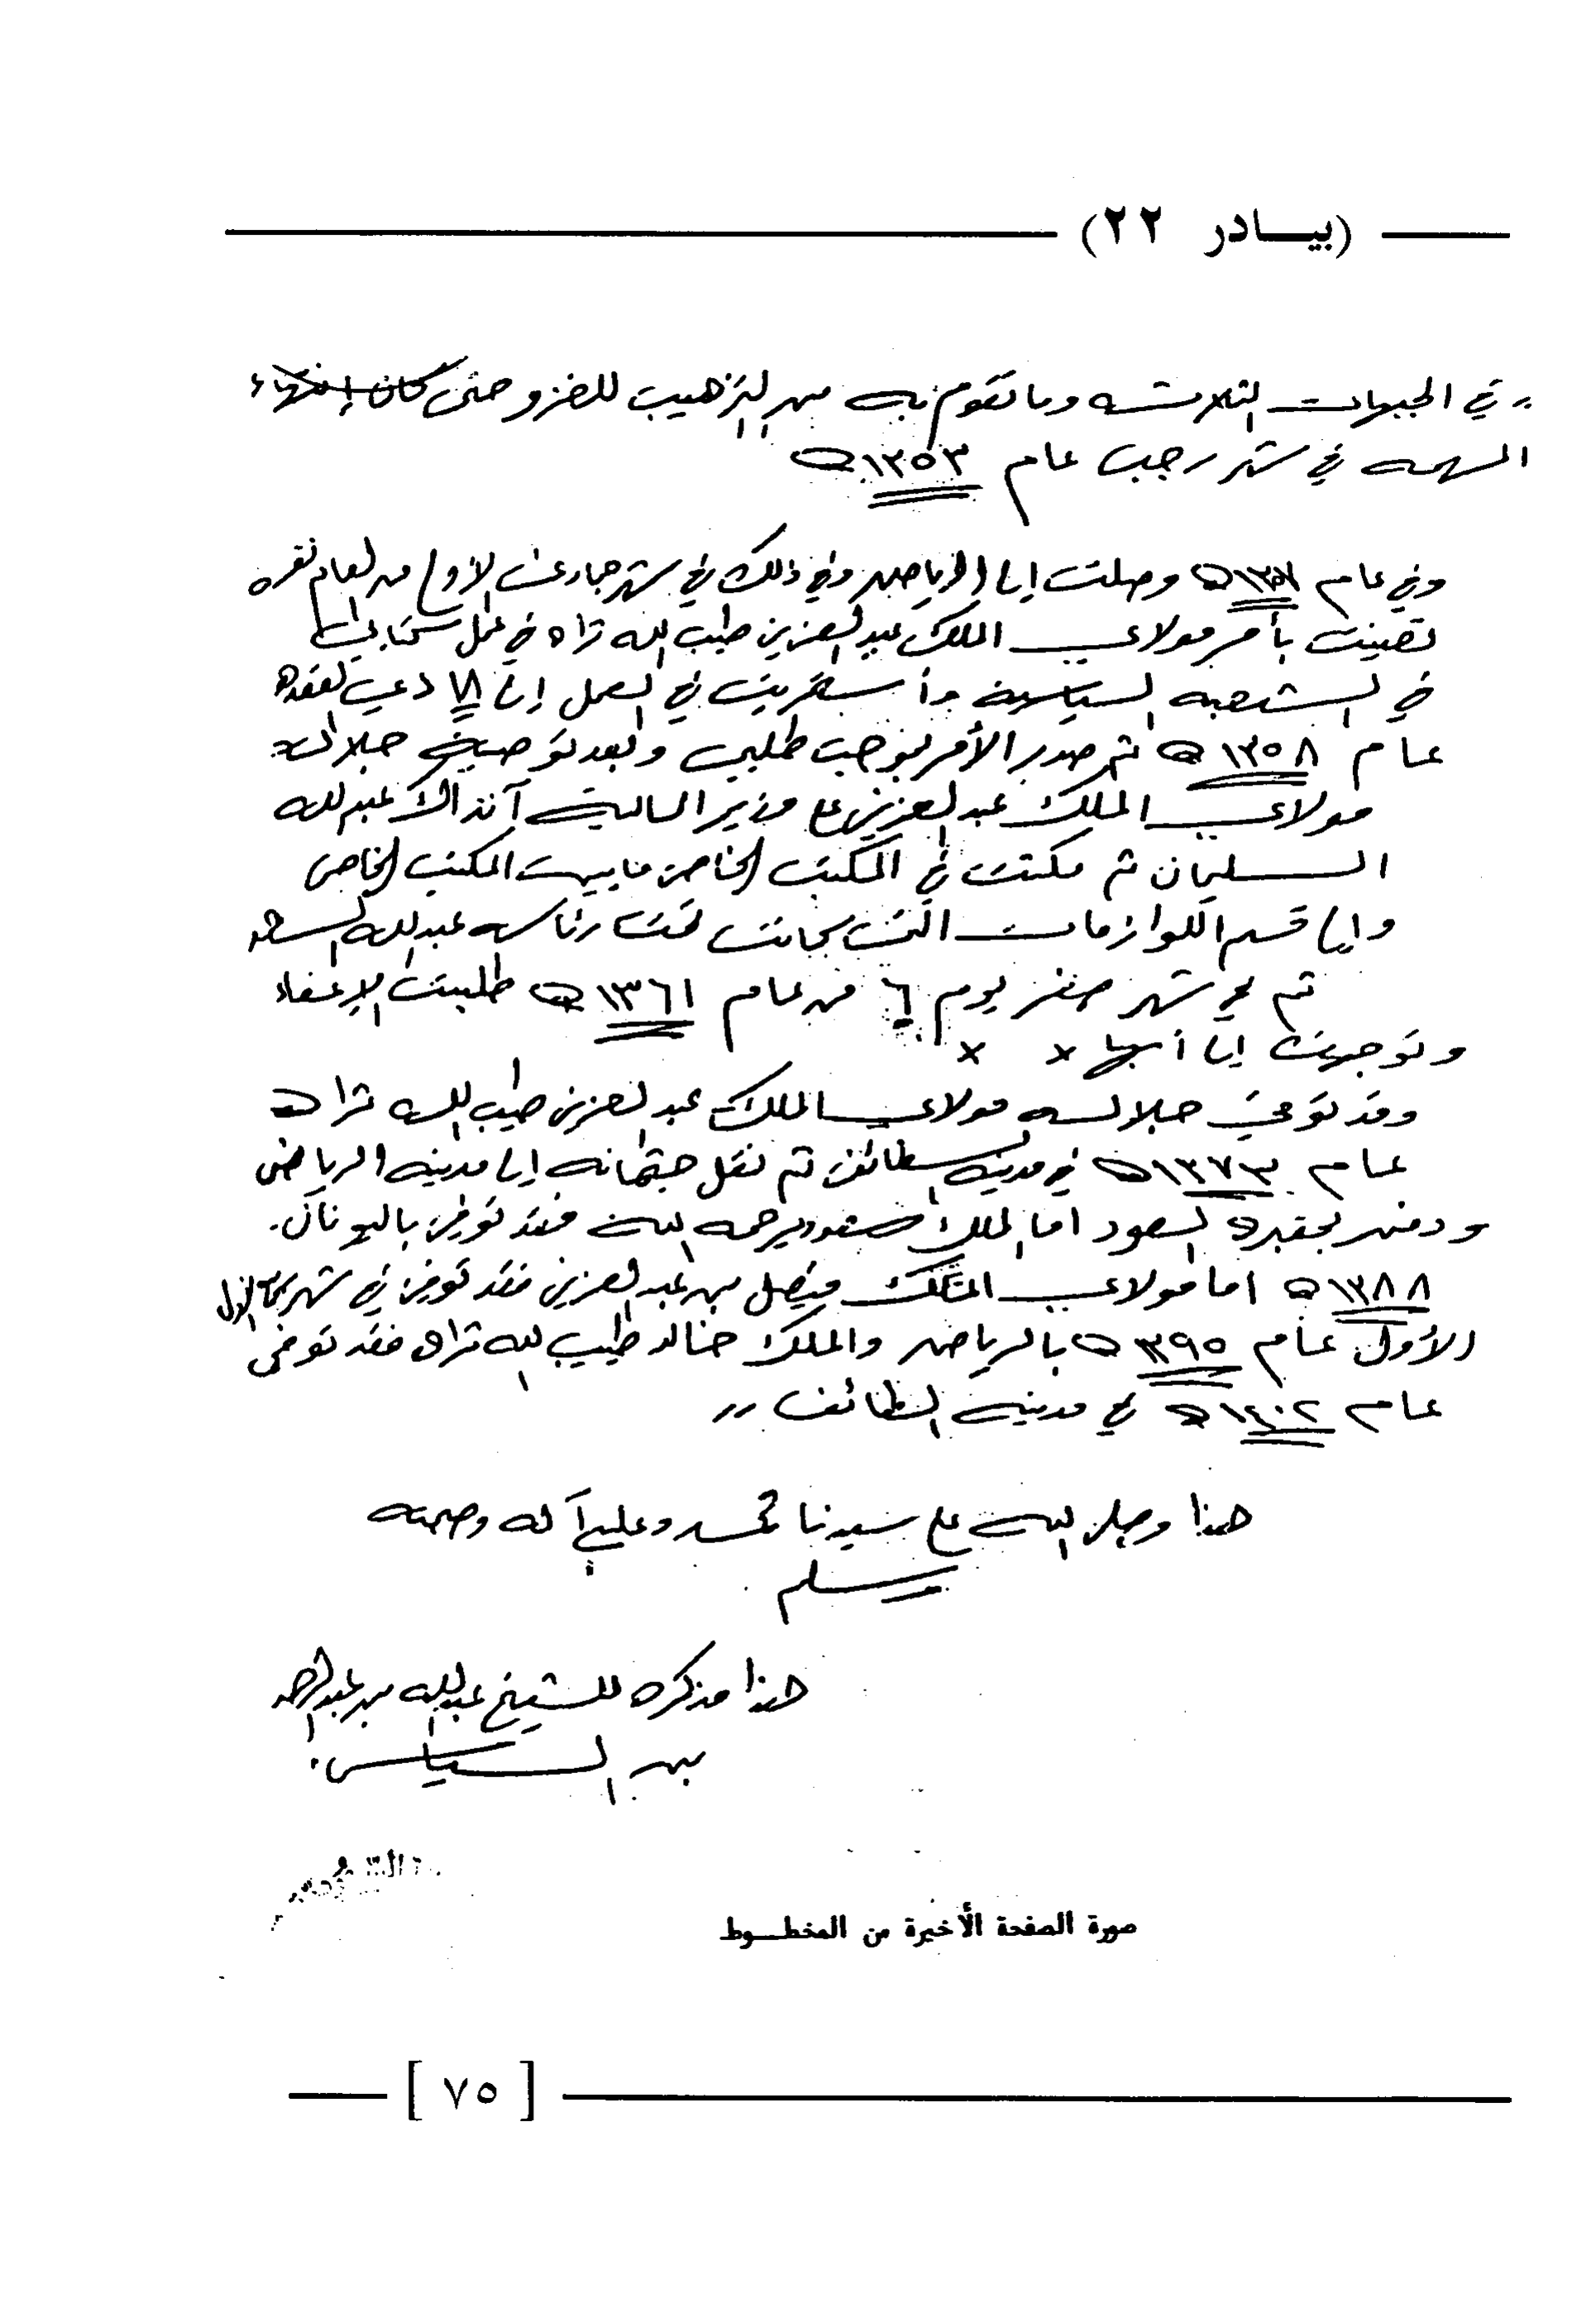 (بيادر ٢٢)
في الجبهات الثلاث وما تقوم به من الترهيب للغزو حتى كان إنتهاء
المهمه في شهر رجب عام ١٣٥٣ه
وفي عام وصلت إلى الرياض وفي ذلك في شهر جمادى الأول من العام نفسه
تعينت بأمر مولاي الملك عبد العزيز طيب الله ثراه في عمل كتابي
في الشعبه السياسية وأستمريت في العمل إلى ذي القعده
عام ١٣٥٨ه ثم صدر الأمر بموجب طلبي وبعد توصية جلالة
مولاي الملك عبد العزيز على وزير المالية آنذاك عبد الله
السليمان ثم مكثت في المكتب الخاص ما بين المكتب الخاص
وإلى قسم اللوازمات التي كانت تحت رئاسة عبد الله السعد
ثم في شهر صفر يوم ٦ من عام ١٣٦١ه طلبت الإعفاء
وتوجهت إلى أبها × ×
وقد توفي جلالة مولاي الملك عبد العزيز طيب الله ثراه
عام ١٣٧٣ه في مدينة الطائف ثم نقل جثمانه إلى مدينة الرياض
ودفن بمقبرة السعود أما الملك سعود يرحمه الله فقد توفي باليونان.
١٣٨٨ه اما مولاي الملك فيصل بن عبد العزيز فقد توفي في شهر
الأول عام ١٣٩٥ه بالرياض والملك خالد طيب الله ثراه فقد توفى
عام ١٤٠٢ه في مدينة الطائف ,,
هذا وصلى الله على سيدنا محمد وعلى آله وصحبه
وسلم
هذا مذكره للشيخ عبد الله بن عبد الرحمن
بن الياس.
صورة الصفحة الأخيرة من المخطوط
[ ٧٥ ]